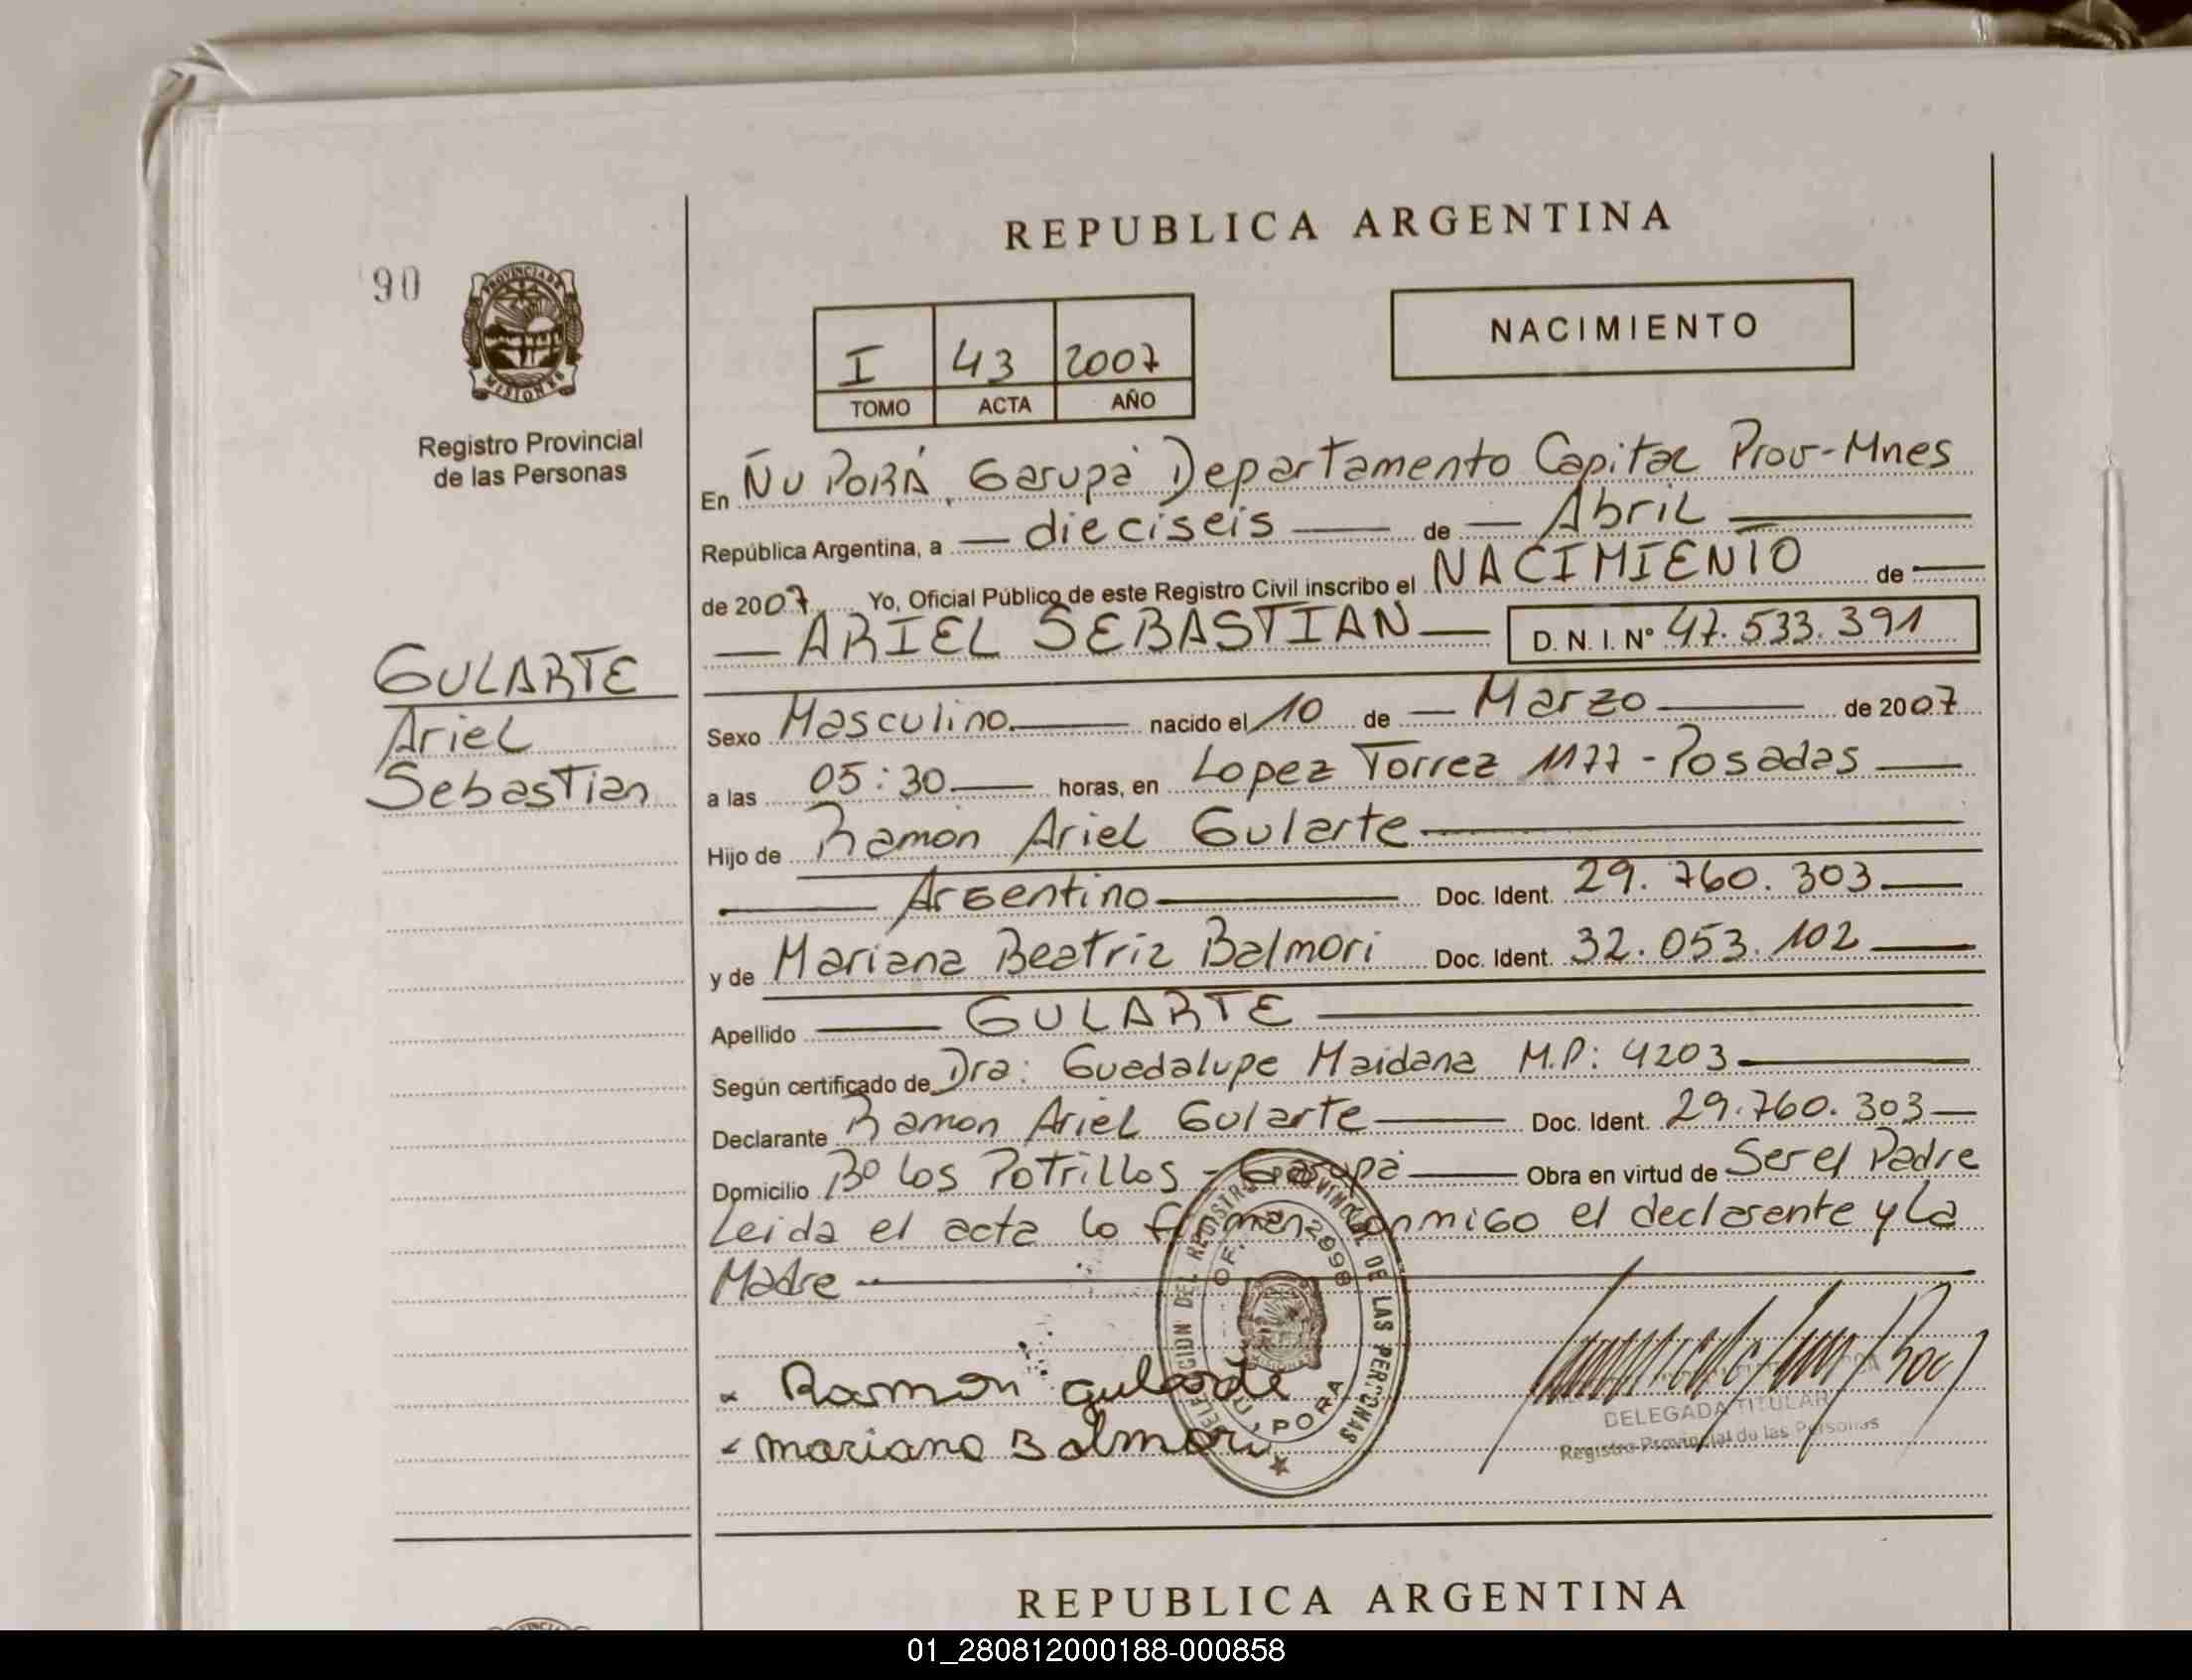 REPUBLICA ARGENTINA
90
PROVINCIA DE
MISIONES
Registro Provincial
de las Personas
I 43 2007
TOMO ACTA AÑO
NACIMIENTO
En ÑU PORÁ, Garupá Departamento Capital Prov-Mnes
República Argentina, a — dieciseis — de — Abril —
de 2007 Yo, Oficial Público de este Registro Civil inscribo el NACIMIENTO de —
— ARIEL SEBASTIAN — D. N. I. Nº 47.533.391
GULARTE
Ariel
Sebastian
Sexo Masculino — nacido el 10 de — Marzo — de 2007
a las 05:30 — horas, en Lopez Torrez 1177 - Posadas —
Hijo de Ramón Ariel Gularte —
— Argentino — Doc. Ident. 29.760.303 —
y de Mariana Beatriz Balmori Doc. Ident. 32.053.102 —
Apellido — GULARTE —
Según certificado de Dra: Guadalupe Maidana M.P: 4203 —
Declarante Ramon Ariel Gularte — Doc. Ident. 29.760.303 —
Domicilio Bº Los Potrillos - Garupá — Obra en virtud de Ser el Padre
Leida el acta lo firman conmigo el declarante y La
Madre —
DEL REGISTRO PROVINCIAL DE LAS PERSONAS
OF. 2998
PORA
Ramón Gularte
mariana Balmori
DELEGADA TITULAR
Registro Provincial de las Personas
REPUBLICA ARGENTINA
01_280812000188-000858